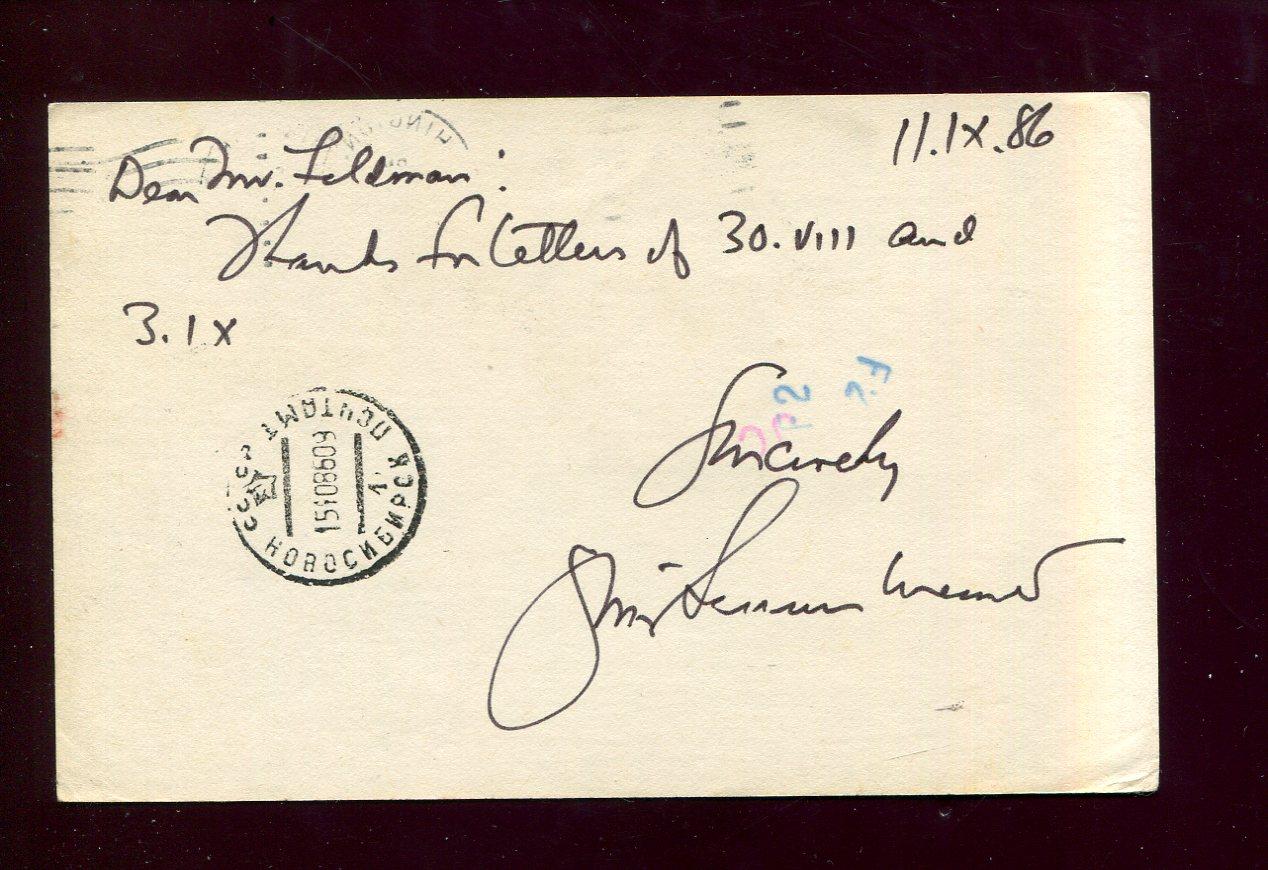 11.IX.86
Dear Mr. Feldman:
Thanks for letters of 30.VIII and
3.IX
Sincerely
СССР НОВОСИБИРСК ПОЧТАМТ
1